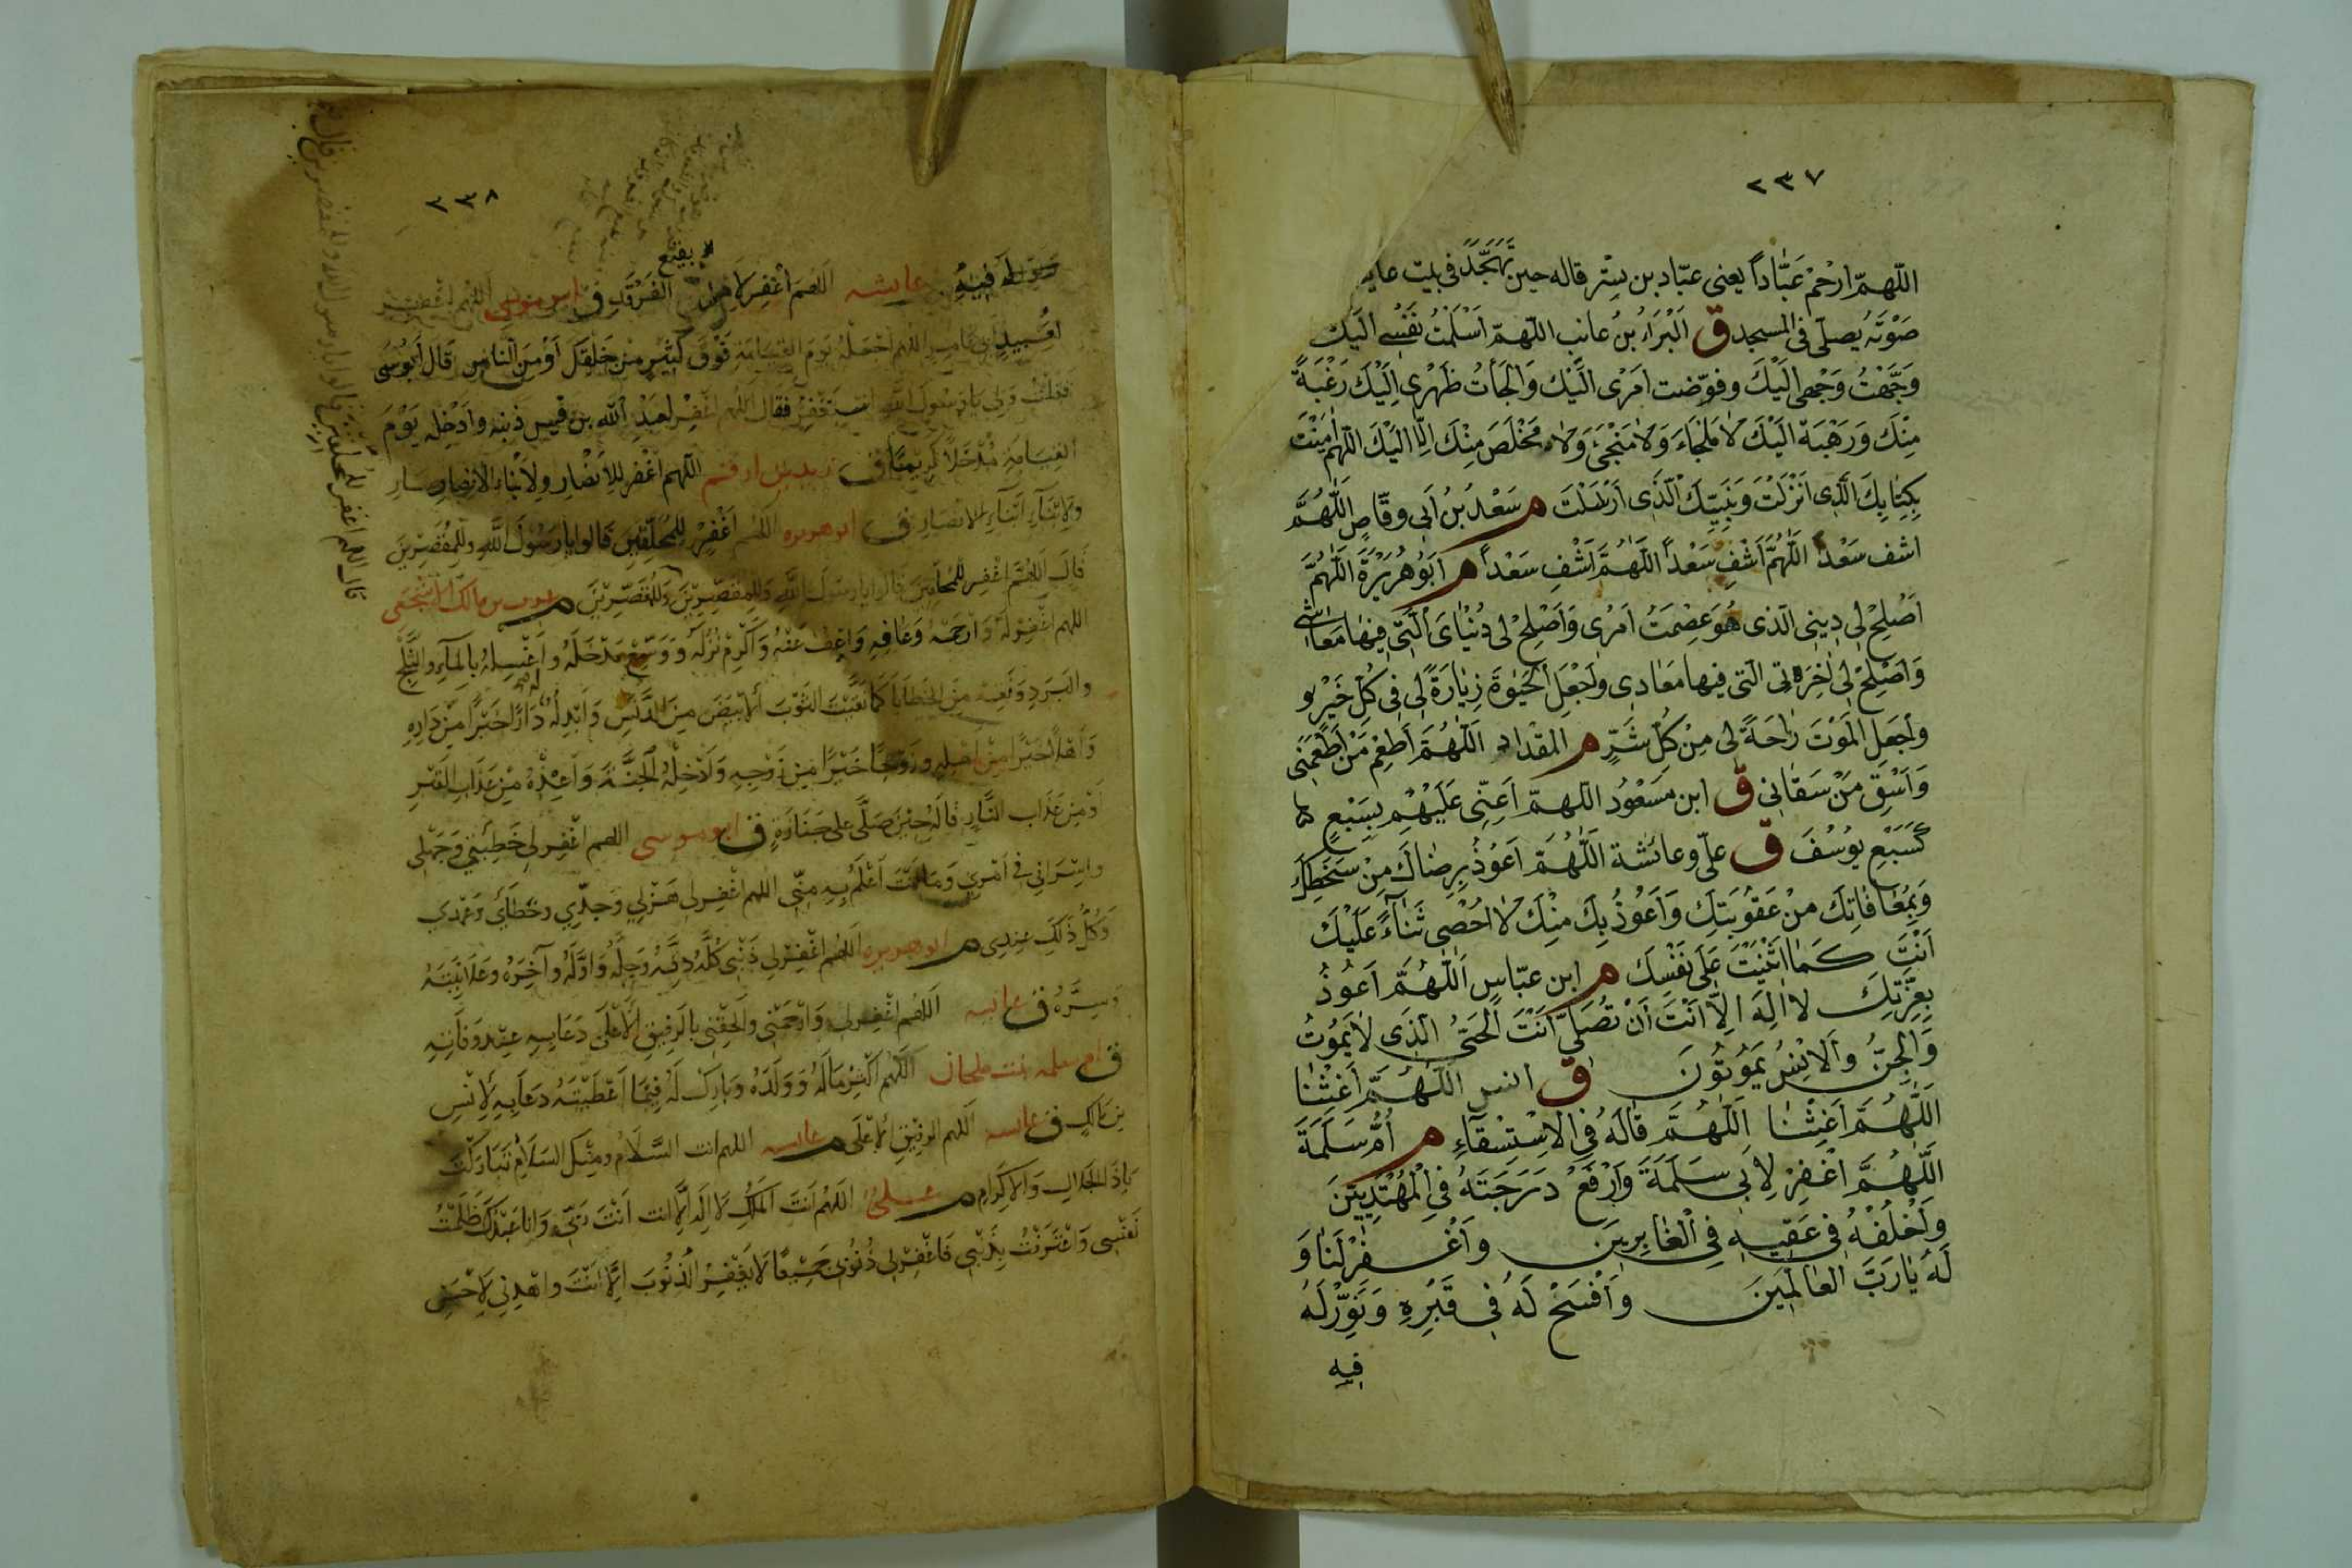 ٢٣٧
اللّهمّ ارْحَمْ عَبَّاداً يعنى عبّاد بن بشر قاله حين تَهَجَّدَ فى بيت عايـ
صَوْتَهُ يُصلّى فى المسجد ق اَلْبَرَاءُ بنُ عازب اللّهمّ اَسْلَمْتُ نَفْسِى اليك
وَجَّهْتُ وَجْهِى الَيْكَ وفوّضت اَمْرى الَيْك وَالْجَأتُ ظَهْرى اِلَيْكَ رَغْبَةً
مِنْكَ وَرَهْبَةً اليْكَ لا مَلْجَاءَ وَلا مَنْجَى وَلا مَخْلَصَ مِنْكَ اِلّا اليْكَ اللّهم اٰمَنْت
بِكِتَابِكَ الَّذِى اَنْزَلْتَ وَنَبِيّكَ الَّذى اَرْسَلْتَ م سَعْدُ بْنُ اَبى وقّاصٍ اللّٰهُمَّ
اشف سَعْداً اللّٰهُمَّ اَشْفِ سَعْداً اللّٰهُمَّ اَشْفِ سَعْداً م اَبُو هُرَيْرَةَ اللّٰهُمَّ
اَصْلِحْ لِى دِينِى الّذى هُوَ عِصْمَتُ اَمْرى وَاَصْلِحْ لى دُنْيَاىَ الَّتى فيها مَعَاشى
وَاَصْلِحْ لى اٰخِرَتى الّتى فيها مَعَادى واجْعَلِ الْحَيٰوةَ زِيَادَةً لى فى كُلّ خَيْرٍ
واَجْعَلِ الْمَوْتَ رَاحَةً لى مِنْ كُلّ شَرٍّ م المقداد اللّٰهُمَّ اَطْعِمْ مَنْ اَطْعَمَنى
وَاَسْقِ مَنْ سَقَانى ق ابن مَسْعُود اللّهمّ اَعِنّى عَلَيْهِمْ بِسَبْعٍ
كَسَبْعِ يُوسُفَ ق علىّ وعائشة اللّٰهُمَّ اَعُوْذُ بِرِضَاكَ مِنْ سَخَطِكَ
وَبِمُعَافَاتِكَ مِنْ عَقُوْبَتِكَ وَاَعُوذُ بِكَ مِنْكَ لا اُحْصِى ثَنَاءً عَلَيْكَ
اَنْتَ كَمَا اَثْنَيْتَ عَلٰى نَفْسِكَ م ابن عبّاسٍ اللّٰهُمَّ اَعُوذُ
بِعِزَّتِكَ لا اِلٰهَ اِلّا اَنْتَ اَنْ تُضِلَّنى اَنْتَ الْحَىُّ الّذى لا يَمُوْتُ
وَالْجِنُّ وَالْاِنْسُ يَمُوْتُونَ ق انس اللّٰهُمَّ اَغِثْنَا
اللّٰهُمَّ اَغِثْنَا اللّٰهُمَّ قَالَهُ فِى الْاِسْتِسْقَاءِ م اُمُّ سَلَمَةَ
اللّٰهُمَّ اغْفِرْ لِاَبى سَلَمَةَ وَارْفَعْ دَرَجَتَهُ فِى الْمُهْتَدِيِّيْنَ
وَاخْلُفْهُ فى عَقِبِهِ فِى الْغَابِرِيْنَ وَاَغْفِرْ لَنَا وَ
لَهُ يَارَبَّ الْعَالَمِيْنَ وَاَفْسَحْ لَهُ فى قَبْرِهِ وَنَوِّرْ لَهُ
فيه
٢٣٨
لَهُ فِيْهِ عايشه اللهم اغْفِرْ لاهل بقيع الغَرْقَدِ ق ابو موسى اللهم اغفر
لعُبَيدٍ اَبى عَامِرٍ اللهم اجْعَلْهُ يَوْمَ القيامة فَوْقَ كَثِيْرٍ مِنْ خَلْقِكَ اَوْ مِنَ النَّاسِ قَالَ اَبُو مُوسٰى
فقلتُ ولى يا رَسُولَ اللهِ استَغْفِرْ فقال اللهم اغْفِرْ لعَبْدِ اللهِ بن قيس ذَنْبه وادْخِلْه يَوْمَ
القيامة مُدْخَلاً كَرِيْمًا ق زيد بن ارقم اللّهم اغْفر للْاَنْصَارِ ولاَبْنَاءِ الانصار
ولابْنَاءِ اَبْنَاءِ الانصَارِ ق ابو هريره اللهم اغْفِرْ للْمُحَلِّقين قَالوا يا رَسُوْلَ اللهِ وللْمُقَصِّرينَ
قال اللهم اغْفِر للمُحلّقين قالوا يا رسُولَ اللهِ وللمُقَصِّريْنَ وللمُقَصّريْنَ م عوف بن مالك الاشجعى
اللهم اغْفِرْ لَهُ وَارحمْه وعَافِهِ وَاعْفُ عَنْهُ وَاَكْرِمْ نُزُلَه وَوَسِّعْ مَدْخَلَهُ وَاغْسِلْهُ بالمآءِ والثَّلْجِ
والبَرَدِ وَنَقِّهِ مِنَ الخَطَايَا كَمَا نَقَّيْتَ الثَّوْبَ الاَبْيَضَ مِنَ الدَّنَسِ وَاَبْدِلْهُ دَارًا خَيْرًا مِنْ دَارِهِ
وَاَهْلاً خَيْرًا مِنْ اَهْلِهِ وزَوْجًا خَيْرًا مِنْ زَوْجِهِ وَاَدْخِلْهُ الْجَنَّةَ وَاَعِذْهُ مِنْ عَذَابِ القَبْرِ
وَمِنْ عَذَابِ النَّارِ قَالَهُ حِيْنَ صَلَّى على جَنَازَةٍ ق ابو موسى اللهم اغْفِرْ لى خَطِيْئَتى وَجَهْلى
واِسْرَافى فى اَمْرى وَمَا اَنْتَ اَعْلَمُ بِهِ مِنّى اللهم اغْفِر لى هَزْلى وَجِدّى وخَطَائى وَعَمْدى
وَكُلُّ ذَلِكَ عِنْدِى م ابو هريره اللهم اغْفِرْ لى ذَنْبى كُلَّهُ دِقَّهُ وَجِلَّهُ وَاوَّلَهُ وآخِرَهُ وعَلاَنِيَتَهُ
وَسِرَّهُ ق عايشه اللهم اغْفِر لى وَارْحَمْنى والْحِقْنى بالرَفِيْقِ الْاَعْلَى دَعَا بِهِ عِنْدَ وَفَاتِهِ
ق ام سليم بنت ملحان اللّهم اَكْثِرْ مَالَهُ وَوَلَدَهُ وَبَارِكْ لَهُ فِيْمَا اَعْطَيْتَهُ دَعَا بِهِ لِاَنَسِ
بن مالك ق عايشه اللهم الرفيق الْاَعْلَى م عايشه اللهم انت السَّلَامُ ومِنْكَ السَلامُ تَبَارَكْتَ
يَا ذَا الجَلالِ وَالاكْرَامِ م علىّ اللهم اَنْتَ المَلِكُ لا اِلٰهَ اِلَّا انت اَنْتَ رَبّى وَانا عَبْدُكَ ظَلَمْتُ
نَفْسِى وَاعْتَرَفْتُ بِذَنْبِى فَاغْفِرْ لى ذُنُوْبى جَمِيْعًا لا يَغْفِرُ الذُنُوبَ اِلَّا اَنْتَ وَاهْدِنى لاَحْسَنِ